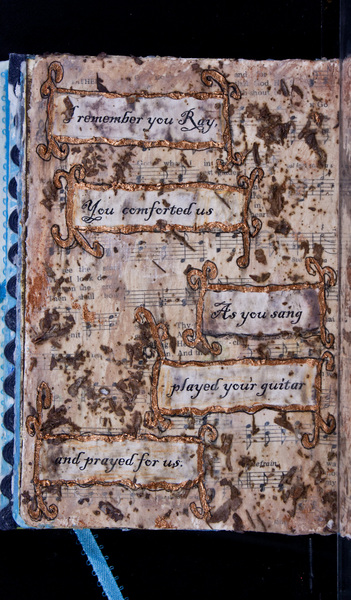 I remember you Ray,
You comforted us
As you sang
played your guitar
and prayed for us.